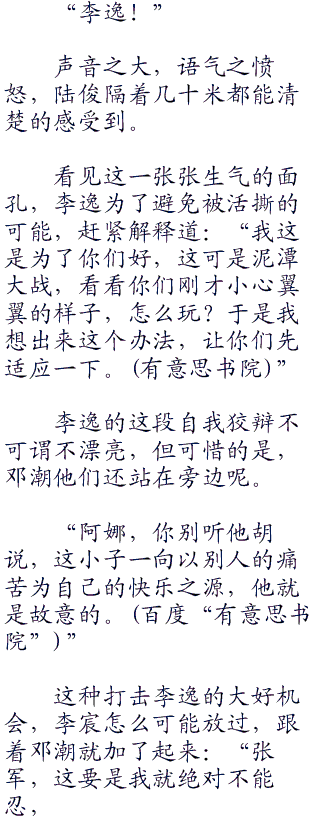 “李逸！”
声音之大，语气之愤
怒，陆俊隔着几十米都能清
楚的感受到。
看见这一张张生气的面
孔，李逸为了避免被活撕的
可能，赶紧解释道：“我这
是为了你们好，这可是泥潭
大战，看看你们刚才小心翼
翼的样子，怎么玩？于是我
想出来这个办法，让你们先
适应一下。(有意思书院)”
李逸的这段自我狡辩不
可谓不漂亮，但可惜的是，
邓潮他们还站在旁边呢。
“阿娜，你别听他胡
说，这小子一向以别人的痛
苦为自己的快乐之源，他就
是故意的。(百度“有意思书
院”)”
这种打击李逸的大好机
会，李宸怎么可能放过，跟
着邓潮就加了起来：“张
军，这要是我就绝对不能
忍，